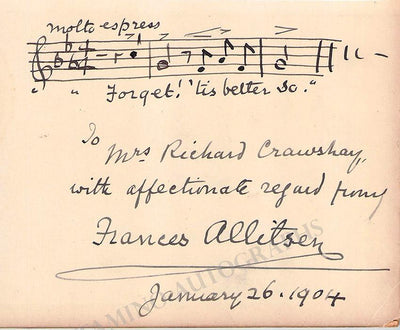 molto espress
" " Forget! 'tis better so."
To
Mrs Richard Crawshay,
with affectionate regard from
Frances Allitsen
TAMINO AUTOGRAPHS
January 26. 1904